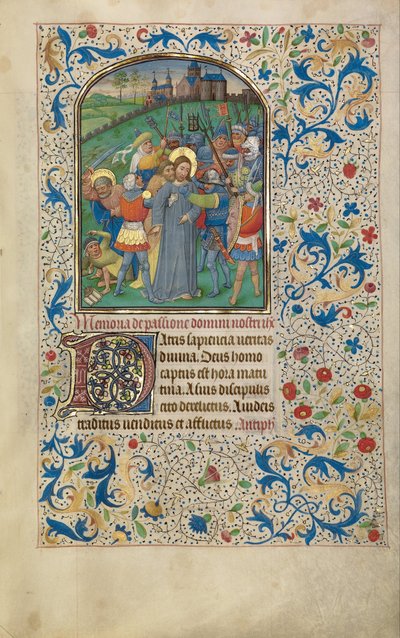 Memoria de passione domini nostri ihx
PAtris sapiencia ueritas
diuina. Deus homo
captus est hora matu
tina. A suis discipulis
cito derelictus. A iudeis
traditus uenditus et afflictus. Antiph